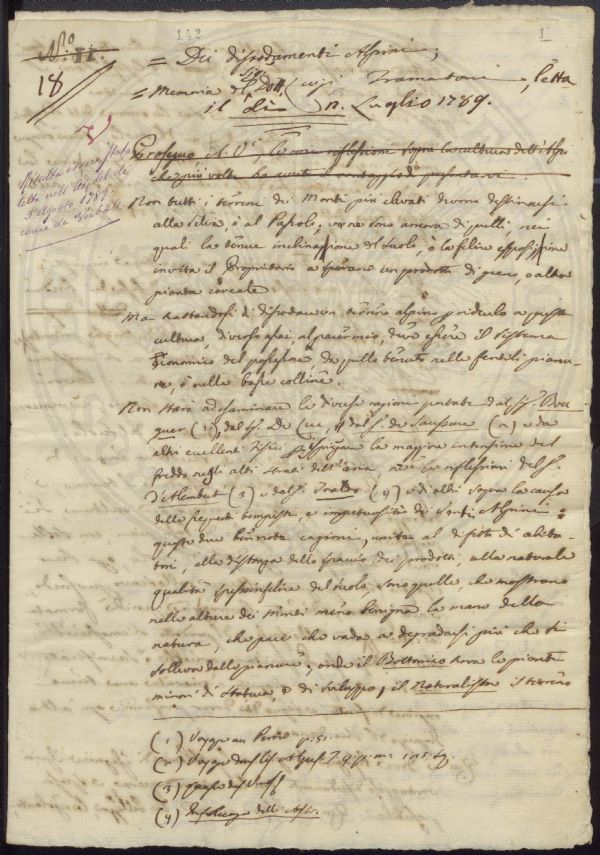 142
1
N.o II.
18
= Dei dissodamenti Alpini;
= Memoria del Sig. Dott. Luigi Tramontani, letta
il dì n. Luglio 1789.
Risulta essere stata
letta nell'
5 Agosto 1789.
come da
le mie riflessioni sopra la cultura dell'Alpi
Non tutti i terreni dei Monti più elevati devono destinarsi
alla Selva, o al Pascolo; ve ne sono ancora di quelli, nei
quali la tenue inclinazione del suolo, o la felice esposizione
invita il Proprietario a sperare un prodotto di grano, o altra
pianta cereale.
Ma trattandosi di dissodare un terreno alpino, e ridurlo a questa
cultura, diverso assai al parer mio, deve essere il sistema
Economico del possessore da quello tenuto nelle fertili pianu-
re, o nelle basse colline.
Non starò ad esaminare le diverse ragioni portate dal Sig. Bou-
guer (1), dal Sig. De Luc, e dal Sig. de Saussure (2) e da
altri eccellenti Fisici per spiegare la maggior intensione del
freddo negli alti strati dell'aria, nè le riflessioni del S.
D'Alembert (3) e del S. (4) e di altri sopra la causa
delle frequenti tempeste, e impetuosità dei Venti Alpini:
queste due ben note cagioni, unite al difetto di abita-
tori, alla distanza dello spaccio dei prodotti, alla naturale
qualità del suolo, sono quelle, che mostrano
nelle alture dei Monti meno benigna la mano della
natura, che pare che vada a degradarsi più che si
solleva dalle pianure, onde il Bottanico trova le piante
minori di statura, e di sviluppo, il Naturalista il terreno
(1) Voyage au Perou p. 51.
(2) Voyage dans les Alpes T. 4.
(3)
(4) dell'Alpi.